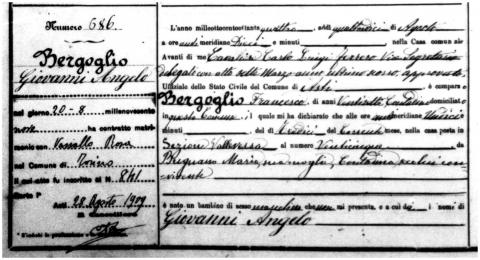 Numero 686.
Bergoglio
Giovanni Angelo
nel giorno 20-8 millenovecento
nove ha contratto matri-
monio con Vassallo Rosa
nel Comune di Torino
il cui atto fu inscritto al N. 841
Parte I
Asti 28 Agosto 1909
Il Cancelliere
L'anno milleottocentottanta quattro, addì quattordici di Agosto
a ore anti meridiane dieci e minuti , nella Casa comunale
Avanti di me Cavalier Carlo Luigi Vice Segretario
delegato con atto sette Marzo anno ultimo scorso approvato,
Uffiziale dello Stato Civile del Comune di Asti, è comparso
Bergoglio Francesco, di anni ventisette, Contadino domiciliato
in questo Comune, il quale mi ha dichiarato che alle ore meridiane
minuti , del dì tredici del corrente mese, nella casa posta in
Sezione Valleversa al numero
Bugnano Maria, sua moglie, Contadina, seco lui con-
vivente
è nato un bambino di sesso mascolino che mi presenta, e a cui dà i nomi di
Giovanni Angelo